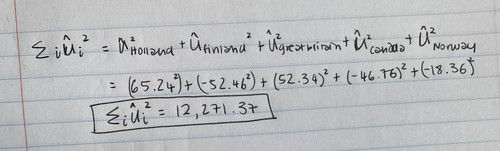 Σᵢûᵢ² = û²Holland + ûFinland² + û²greatbritain + û²Canada + û²Norway
= (65.24²) + (-52.46²) + (52.34)² + (-46.76)² + (-18.36)²
Σᵢûᵢ² = 12,271.37